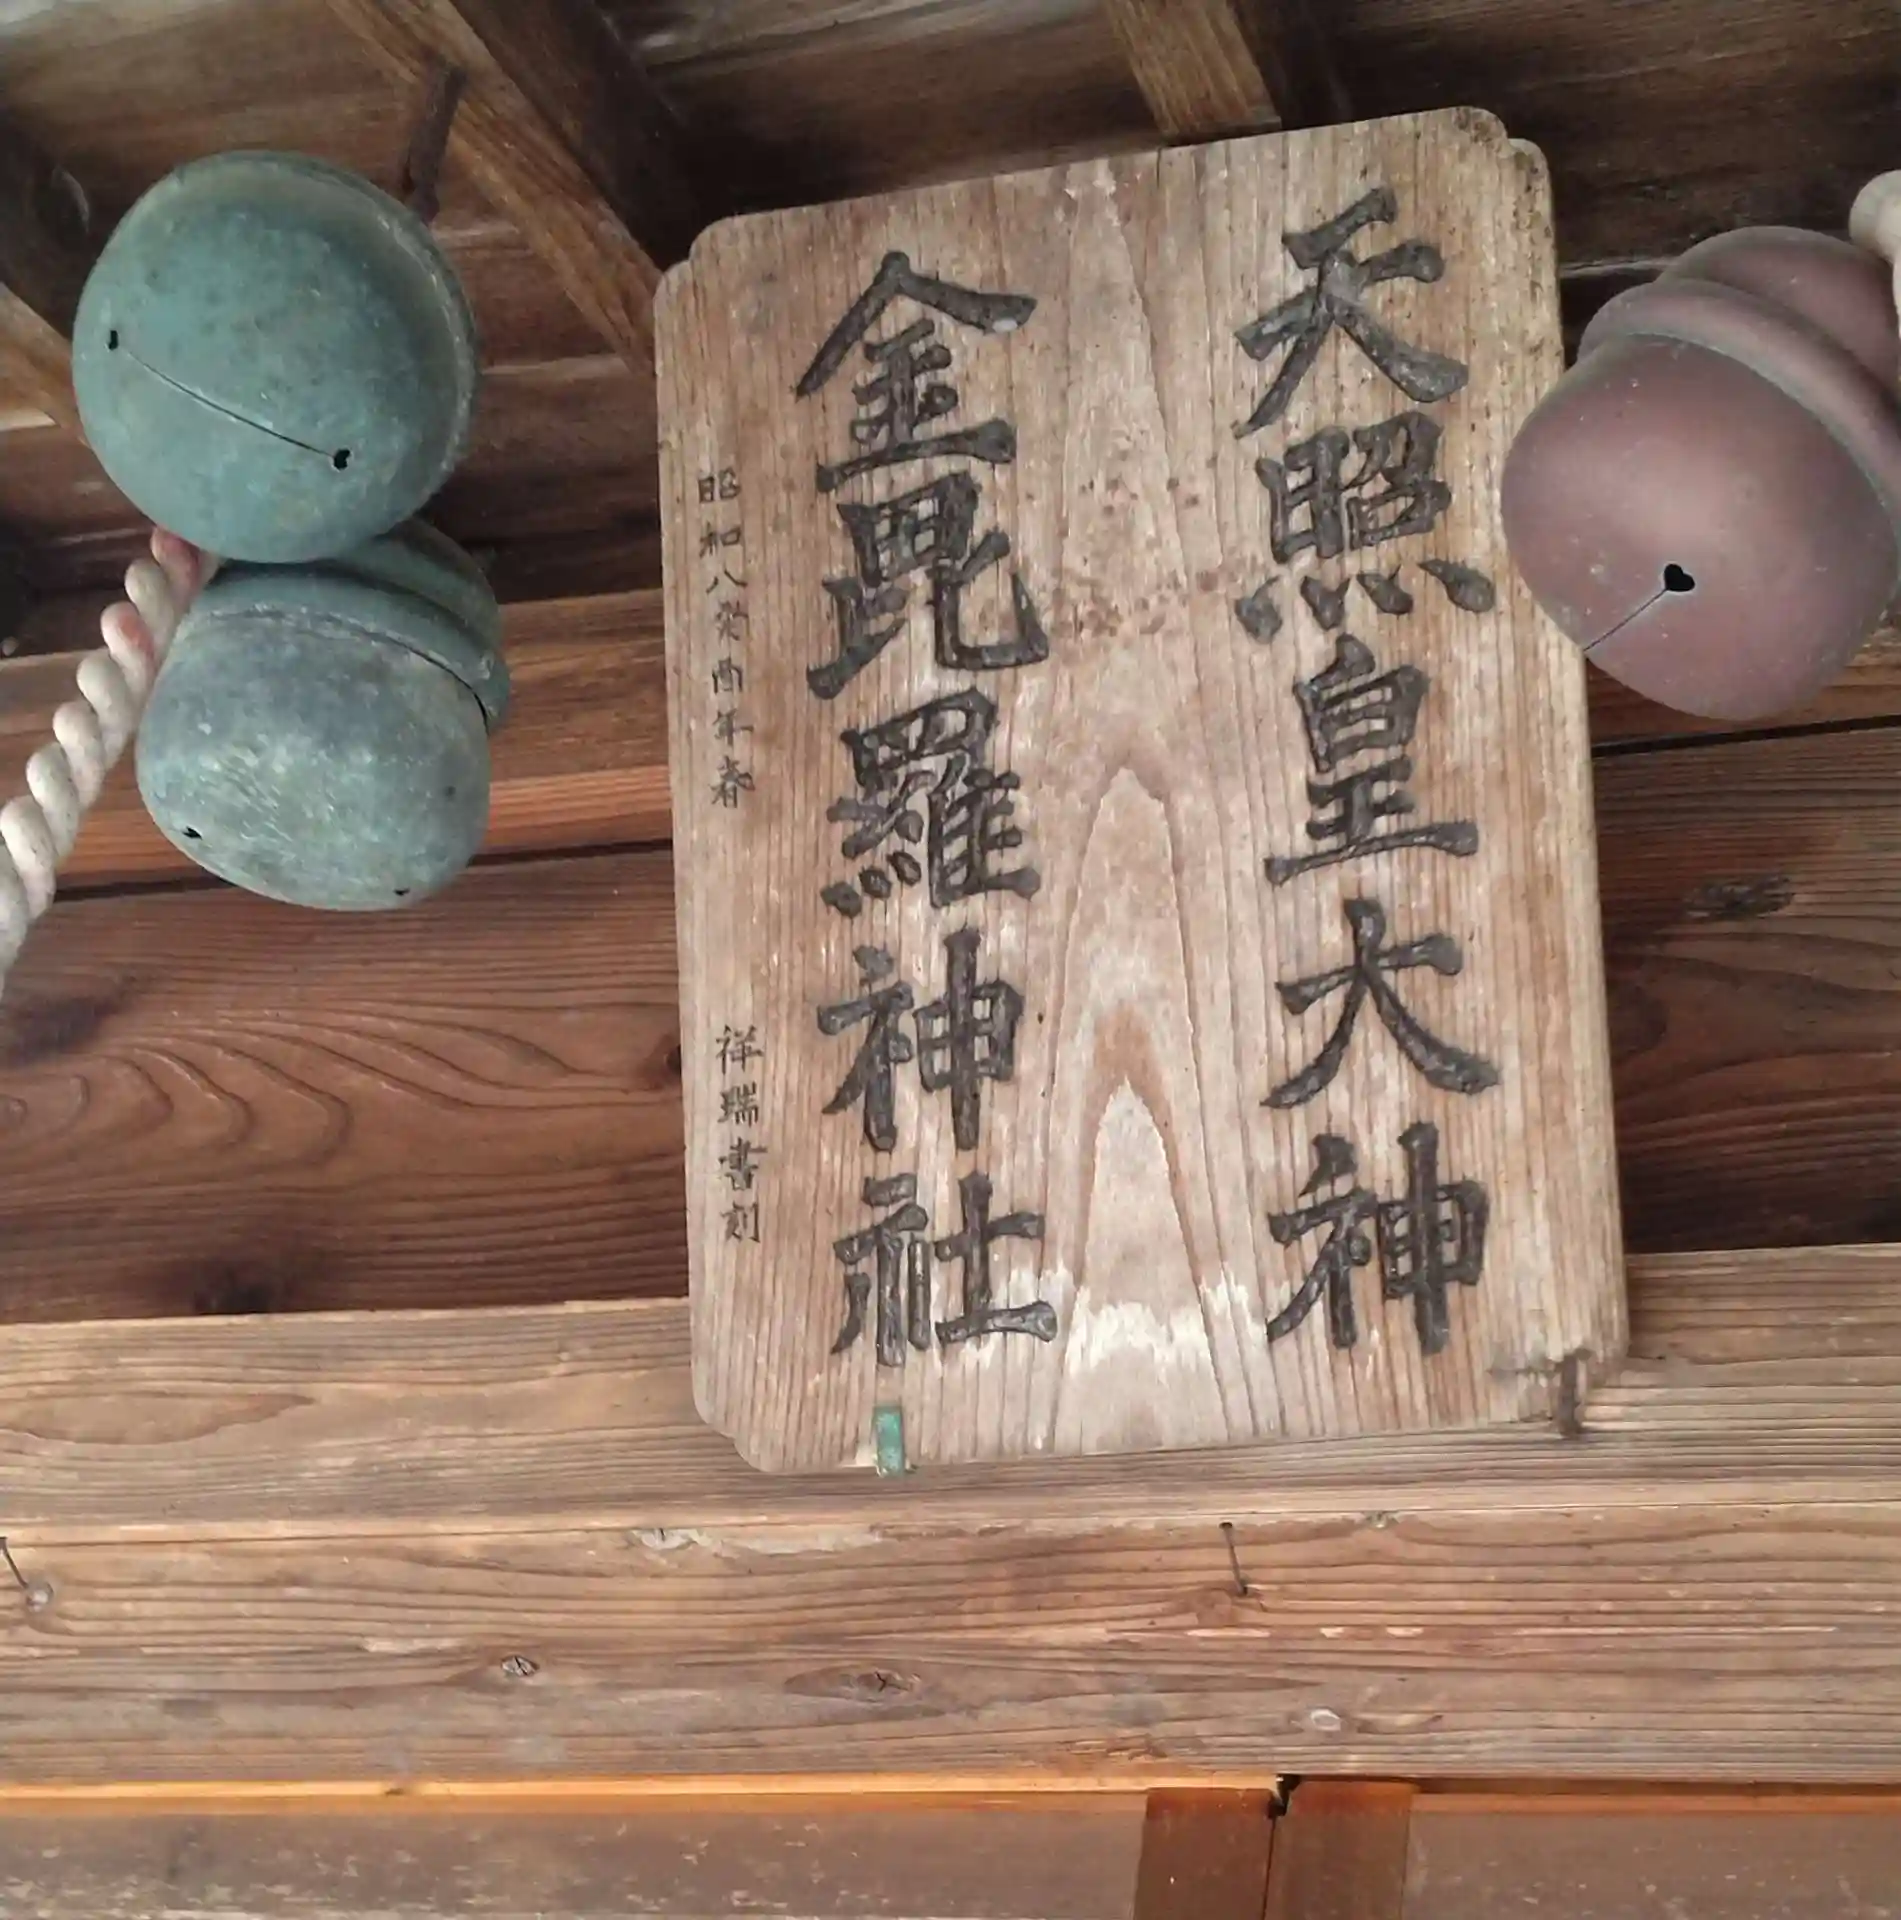 天照皇大神
金毘羅神社
昭和八癸酉年春
祥瑞書刻